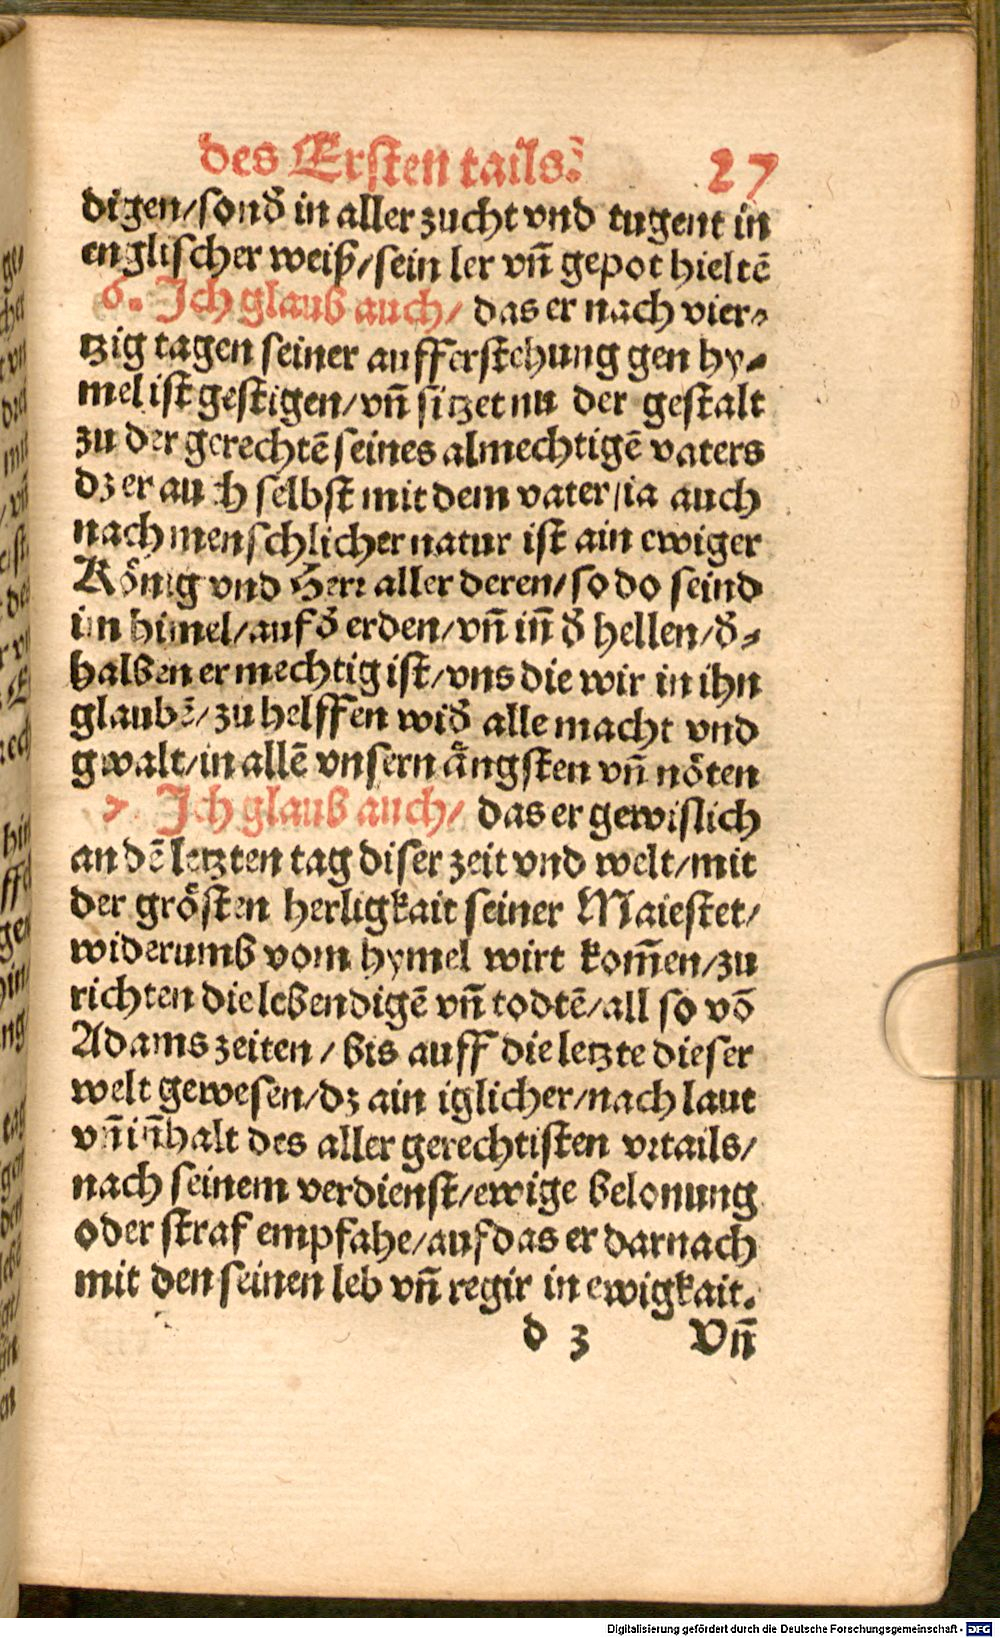 des Ersten tails. 27
digen/sonð in aller zucht vnd tugent in
englischer weiß/sein ler vñ gepot hieltē
6. Ich glaub auch/ das er nach vier-
tzig tagen seiner aufferstehung gen hy-
mel ist gestigen/vñ sitzet nu der gestalt
zu der gerechtē seines almechtigē vaters
dz er auch selbst mit dem vater/ia auch
nach menschlicher natur ist ain ewiger
König vnd Herr aller deren/so do seind
im himel/auf ð erden/vñ iñ ð hellen/ð-
halben er mechtig ist/vns die wir in ihn
glaubē/zu helffen wið alle macht vnd
gwalt/in allē vnsern ängsten vñ nöten
7. Ich glaub auch/ das er gewislich
an dē letzten tag diser zeit vnd welt/mit
der grösten herligkait seiner Maiestet/
widerumb vom hymel wirt kom̄en/zu
richten die lebendigē vñ todtē/all so vō
Adams zeiten/bis auff die letzte dieser
welt gewesen/dz ain iglicher/nach laut
vñ iñhalt des aller gerechtisten vrtails/
nach seinem verdienst/ewige belonung
oder straf empfahe/auf das er darnach
mit den seinen leb vñ regir in ewigkait.
d 3 Vñ
Digitalisierung gefördert durch die Deutsche Forschungsgemeinschaft - DFG